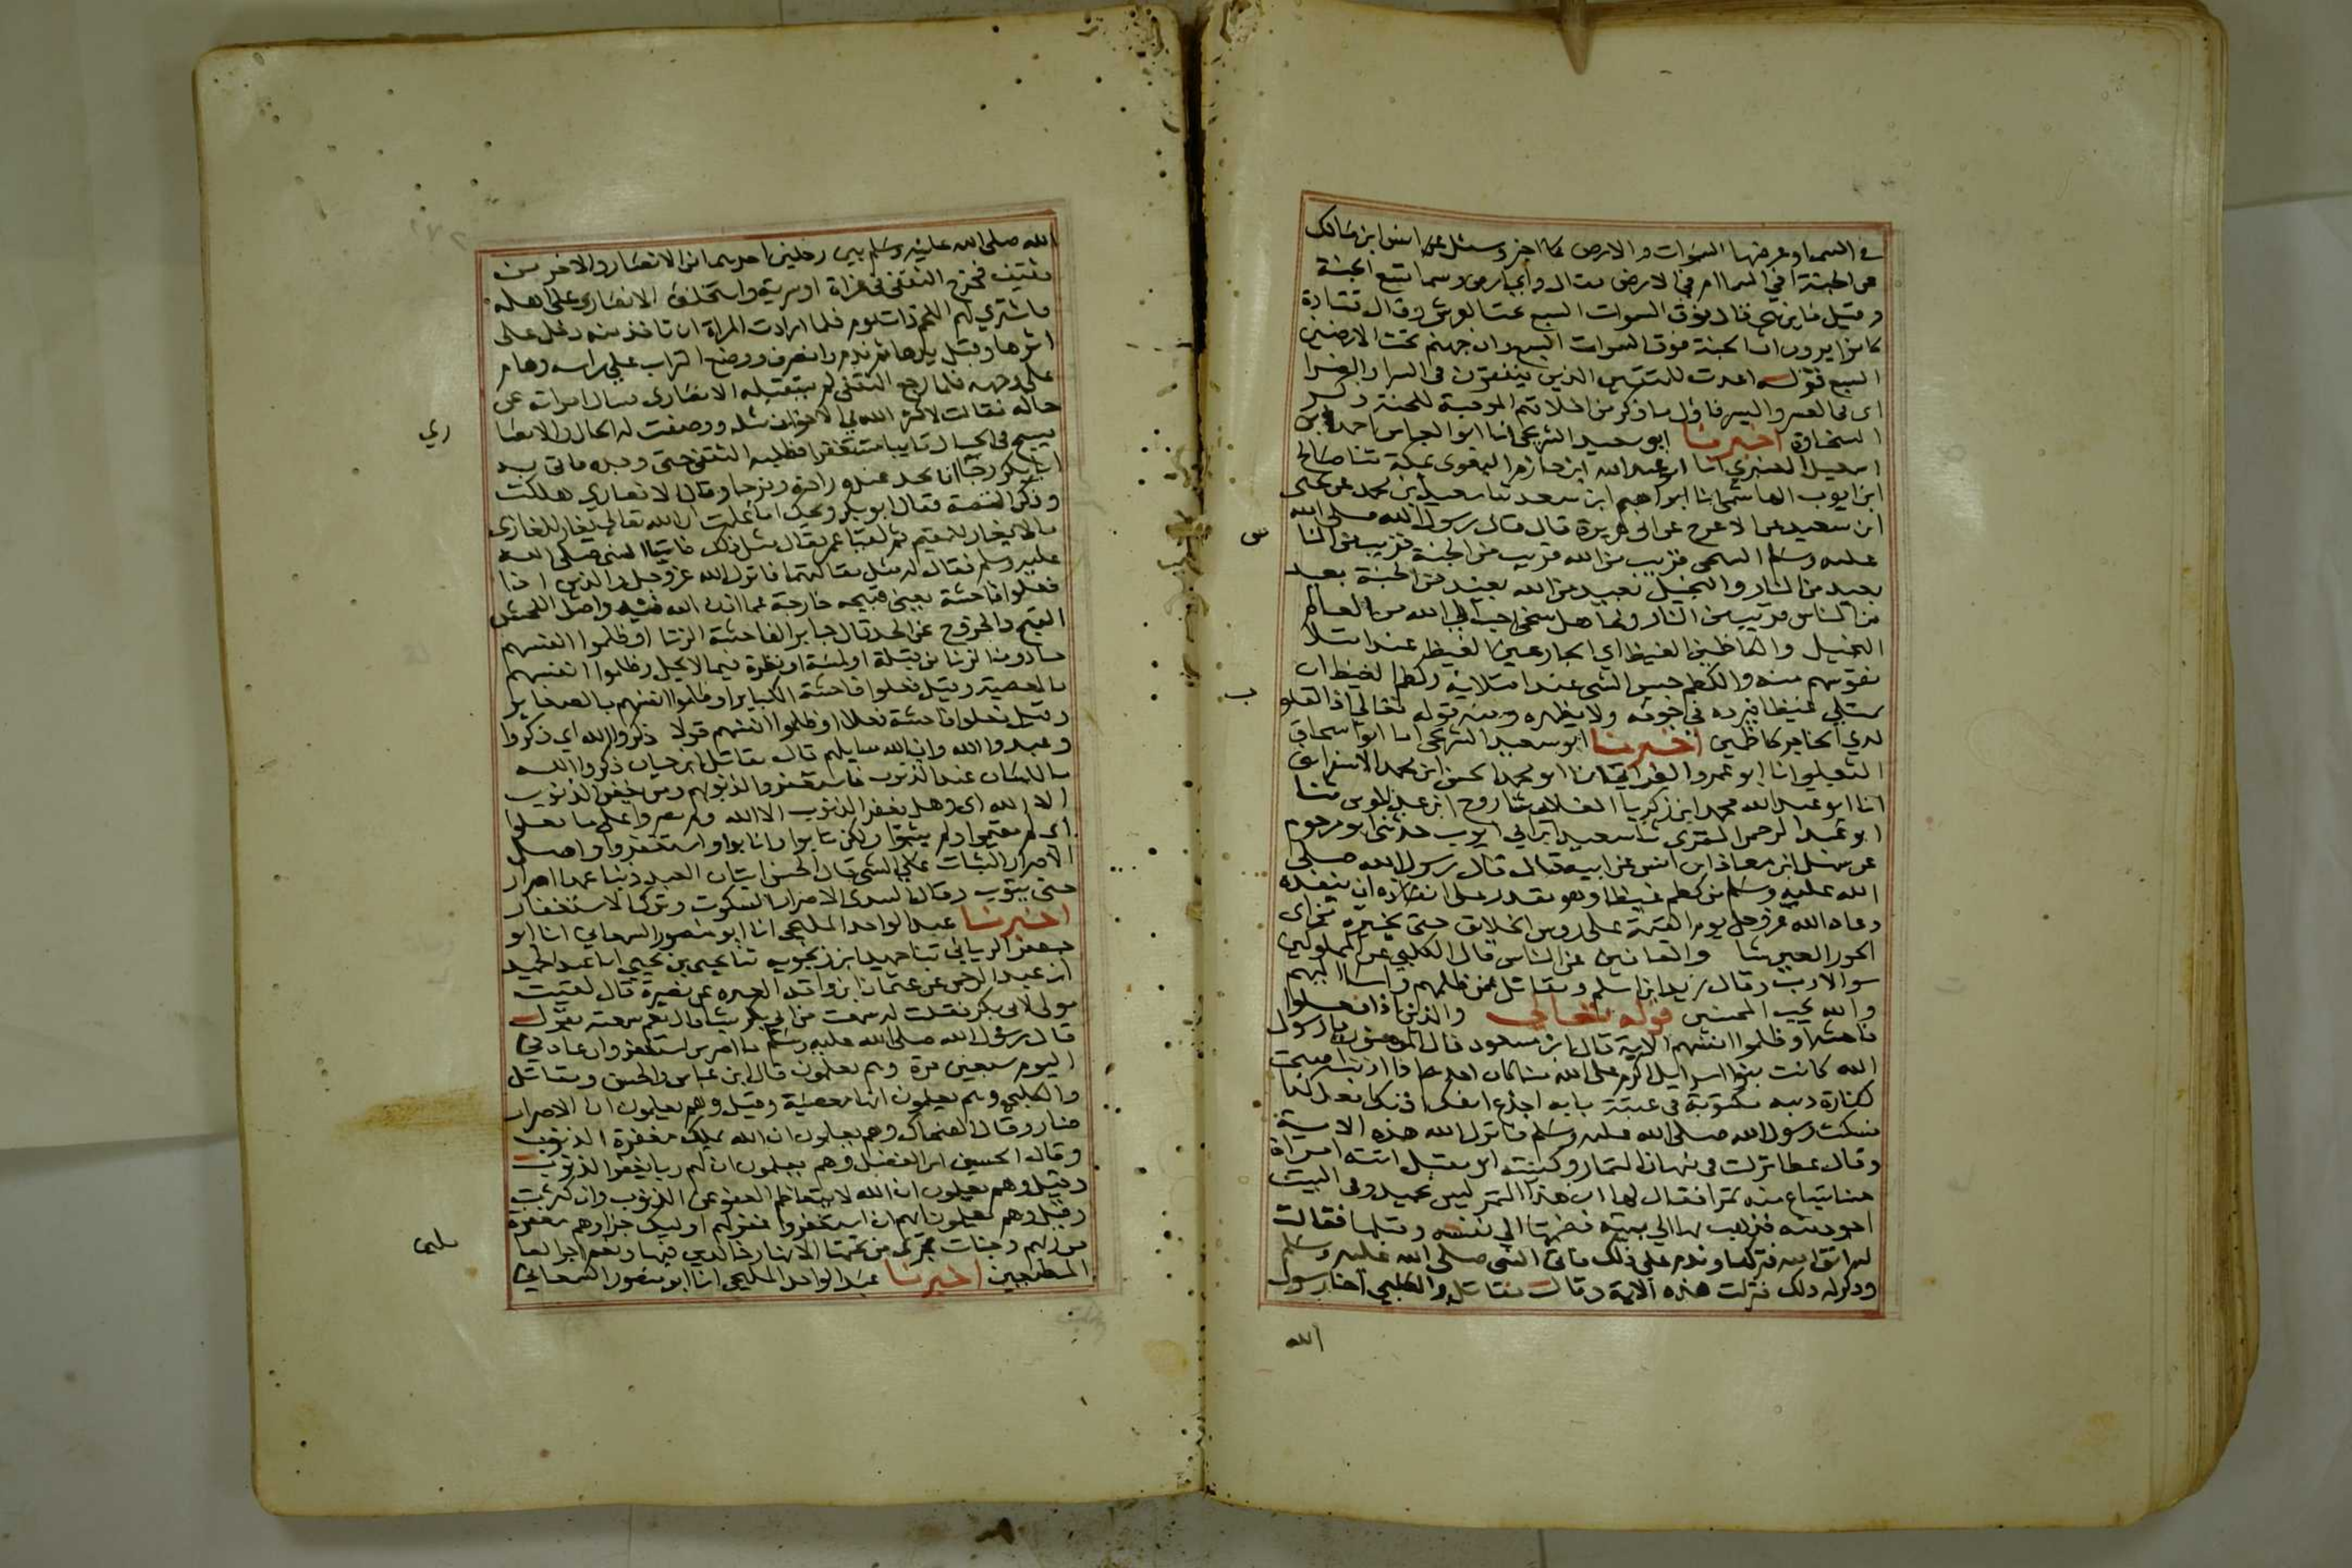 في السماء وعرضها السموات والارض كما اخبر وسئل عن انس ابن مالك
عن الجنة افي السما ام في الارض فقال واي ارض وسما تسع الجنة
وقيل فاين هي قال فوق السموات السبع تحت العرش وقال قتادة
كانوا يرون ان الجنة فوق السموات السبع وان جهنم تحت الارضين
السبع قوله اعدت للمتقين الذين ينفقون في السرا والضرا
اى في العسر واليسر فاول ما ذكر من اخلاقهم الموجبة للجنة ذكر
السخاوة اخبرنا ابو سعيد الشريحى انا ابو اسحاق احمد ابن
ابن ايوب الهاشمى ثنا ابراهيم ابن سعد ثنا سعيد ابن محمد عن يحيى
ابن سعيد عن الاعرج عن ابى هريرة قال قال رسول الله صلى الله
عليه وسلم السخى قريب من الله قريب من الجنة قريب من الناس
بعيد من النار والبخيل بعيد من الله بعيد من الجنة بعيد
من الناس قريب من النار ولجاهل سخى احب الى الله من العالم
البخيل والكاظمين الغيظ اي الجارعين الغيظ عند امتلا
نفوسهم منه والكظم حبس الشى عند امتلايه وكظم الغيظ ان
يمتلي غيظا فيرده في جوفه ولا يظهره ومنه قوله تعالي اذ القلوب
لدي الحناجر كاظمين اخبرنا ابو سعيد الشريحى انا ابو اسحاق
الثعلبي انا ابو عمرو الفراتي انا ابو محمد الحسن ابن محمد الاسفرايني
انا ابو عبد الله محمد ابن زكريا العلا ثنا روح ابن عبد المومن ثنا
ابو عبد الرحمن المقرى ثنا سعيد ابن ابي ايوب حدثني ابو مرحوم
عن سهل ابن معاذ ابن انس عن ابيه قال قال رسول الله صلى
الله عليه وسلم من كظم غيظا وهو يقدر على ان ينفذه
دعاه الله عز وجل يوم القيمة على روس الخلايق حتى يخيره من اى
الحور العين شا والعافين عن الناس قال الكلبي عن المملوكين
سو الادب وقال زيد ابن اسلم ومقاتل عمن ظلمهم واسا اليهم
والله يحب المحسنين قوله تعالي والذين اذا فعلوا
فاحشة او ظلموا انفسهم الاية قال ابن مسعود قال المومنون يا رسول
الله كانت بنوا اسرايل اكرم على الله منا كان احدهم اذا اذنب اصبحت
كفارة ذنبه مكتوبة في عتبة بابه اجدع انفك اذنك افعل كذا
فسكت رسول الله صلى الله عليه وسلم فانزل الله هذه الاية
وقال عطا نزلت في نبهان التمار وكنيته ابو مقبل اتته امراة
حسنا تبتاع منه تمرا فقال لها ان هذا التمر ليس بجيد وفي البيت
اجود منه فذهب بها الي بيته فضمها الي نفسه وقبلها فقالت
له اتق الله فتركها وندم على ذلك فاتى النبي صلى الله عليه وسلم
وذكر له ذلك فنزلت هذه الاية وقال مقاتل والكلبي اخا رسول
الله
الله صلى الله عليه وسلم بين رجلين احدهما من الانصار والاخر من
ثقيف فخرج الثقفى فى غزاة او سرية واستخلف الانصارى على اهله
فاشتري لهم اللحم ذات يوم فلما ارادت المراة ان تاخذ منه دخل على
اثرها وقبل يدها ثم ندم وانصرف ووضع التراب على راسه وهام
على وجهه فلما رجع الثقفى لم يستقبله الانصارى فسال امراته عن
حاله فقالت لا اكثر الله في الاخوان مثله ووصفت له الحال والانصارى
يسيح في الجبال تايبا مستغفرا فطلبه الثقفى حتى وجده فاتى به
ابا بكر رجا ان يجد عنده راحة وفرجا وقال الانصاري هلكت
وذكر القصة فقال ابو بكر ويحك اما علمت ان الله تعالي يغار للغازى
ما لا يغار للمقيم ثم لقيا عمر فقال مثل ذلك فاتيا النبى صلى الله
عليه وسلم فقال له مثل مقالتهما فانزل الله عز وجل والذين اذا
فعلوا فاحشة يعنى قبيحه خارجة عما اذن الله فيه واصل الفحش
القبح والخروج عن الحد قال جابر الفاحشة الزنا او ظلموا انفسهم
ما دون الزنا من قبلة او لمسة او نظرة فيما لا يحل وظلموا انفسهم
بالمعصية وقيل فعلوا فاحشة الكباير او ظلموا انفسهم بالصغاير
وقيل فعلوا فاحشة فعلا او ظلموا انفسهم قولا ذكروا الله اي ذكروا
وعيد الله وان الله سايلهم قال مقاتل ابن حيان ذكروا الله
باللسان عند الذنوب فاستغفروا لذنوبهم ومن يغفر الذنوب
الا الله اى وهل يغفر الذنوب الا الله ولم يصروا على ما فعلوا
اى لم يقيموا ولم يثبتوا ولكن تابوا وانابوا واستغفروا واصل
الاصرار الثبات على الشى قال الحسن اتيان العبد ذنبا عمدا اصرار
حتى يتوب وقال السدى الاصرار السكوت وترك الاستغفار
اخبرنا عبد الواحد المليحى انا ابو منصور السمعاني انا ابو
جعفر الرياني ثنا حميد ابن زنجويه ثنا يحيى بن يحيى انا عبد الحميد
ابن عبد الرحمن عن عثمان ابن واقد العمرى عن نصيرة قال لقيت
مولى لابى بكر فقلت له سمعت من ابى بكر شيا قال نعم سمعته يقول
قال رسول الله صلى الله عليه وسلم ما اصر من استغفر وان عاد في
اليوم سبعين مرة وهم يعلمون قال ابن عباس والحسن ومقاتل
والكلبي وهم يعلمون انها معصية وقيل وهم يعلمون ان الاصرار
ضار وقال الضحاك وهم يعلمون ان الله يملك مغفرة الذنوب
وقال الحسين ابن الفضل وهم يعلمون ان لهم ربا يغفر الذنوب
وقيل وهم يعلمون ان الله لا يتعاظم العفو عن الذنوب وان كثرت
وقيل وهم يعلمون انهم ان استغفروا غفر لهم اوليك جزاوهم مغفرة
من ربهم وجنات تجرى من تحتها الانهار خالدين فيها ونعم اجر العا
المطيعين اخبرنا عبد الواحد المليحى انا ابو منصور السمعاني